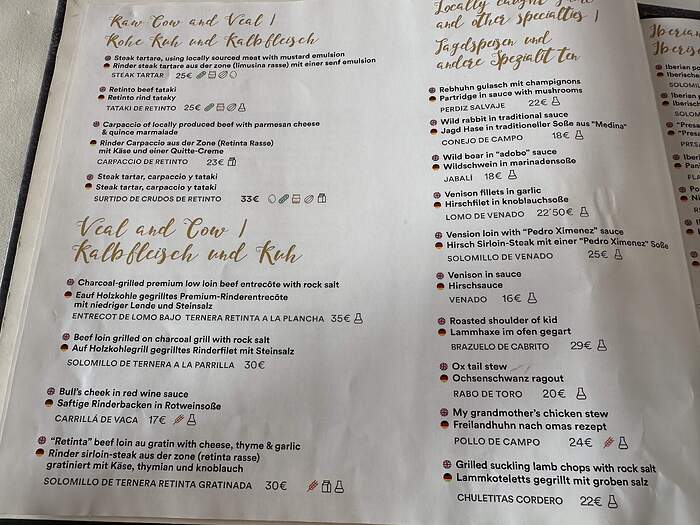 Raw Cow and Veal |
Rohe Kuh und Kalbfleisch
Steak tartare, using locally sourced meat with mustard emulsion
Rinder steak tartare aus der zone (limusina rasse) mit einer senf emulsion
STEAK TARTAR 25€
Retinto beef tataki
Retinto rind tataky
TATAKI DE RETINTO 25€
Carpaccio of locally produced beef with parmesan cheese
& quince marmalade
Rinder Carpaccio aus der Zone (Retinta Rasse)
mit Käse und einer Quitte-Creme
CARPACCIO DE RETINTO 23€
Steak tartar, carpaccio y tataki
Steak tartar, carpaccio y tataki
SURTIDO DE CRUDOS DE RETINTO 33€
Veal and Cow |
Kalbfleisch und Kuh
Charcoal-grilled premium low loin beef entrecôte with rock salt
Eauf Holzkohle gegrilltes Premium-Rinderentrecôte
mit niedriger Lende und Steinsalz
ENTRECOT DE LOMO BAJO TERNERA RETINTA A LA PLANCHA 35€
Beef loin grilled on charcoal grill with rock salt
Auf Holzkohlegrill gegrilltes Rinderfilet mit Steinsalz
SOLOMILLO DE TERNERA A LA PARRILLA 30€
Bull's cheek in red wine sauce
Saftige Rinderbacken in Rotweinsoße
CARRILLÁ DE VACA 17€
"Retinta" beef loin au gratin with cheese, thyme & garlic
Rinder sirloin-steak aus der zone (retinta rasse)
gratiniert mit Käse, thymian und knoblauch
SOLOMILLO DE TERNERA RETINTA GRATINADA 30€
Locally caught
and other specialties |
Jagdspeisen und
andere Spezialit ten
Rebhuhn gulasch mit champignons
Partridge in sauce with mushrooms
PERDIZ SALVAJE 22€
Wild rabbit in traditional sauce
Jagd Hase in traditioneller Soße aus "Medina"
CONEJO DE CAMPO 18€
Wild boar in "adobo" sauce
Wildschwein in marinadensoße
JABALÍ 18€
Venison fillets in garlic
Hirschfilet in knoblauchsoße
LOMO DE VENADO 22´50€
Vension loin with "Pedro Ximenez" sauce
Hirsch Sirloin-Steak mit einer "Pedro Ximenez" Soße
SOLOMILLO DE VENADO 25€
Venison in sauce
Hirschsauce
VENADO 16€
Roasted shoulder of kid
Lammhaxe im ofen gegart
BRAZUELO DE CABRITO 29€
Ox tail stew
Ochsenschwanz ragout
RABO DE TORO 20€
My grandmother's chicken stew
Freilandhuhn nach omas rezept
POLLO DE CAMPO 24€
Grilled suckling lamb chops with rock salt
Lammkoteletts gegrillt mit groben salz
CHULETITAS CORDERO 22€
Iberian
Iberian po
Iberische
Iberian p
Iberische
"Presa
"Presa
PRESA
Iberian